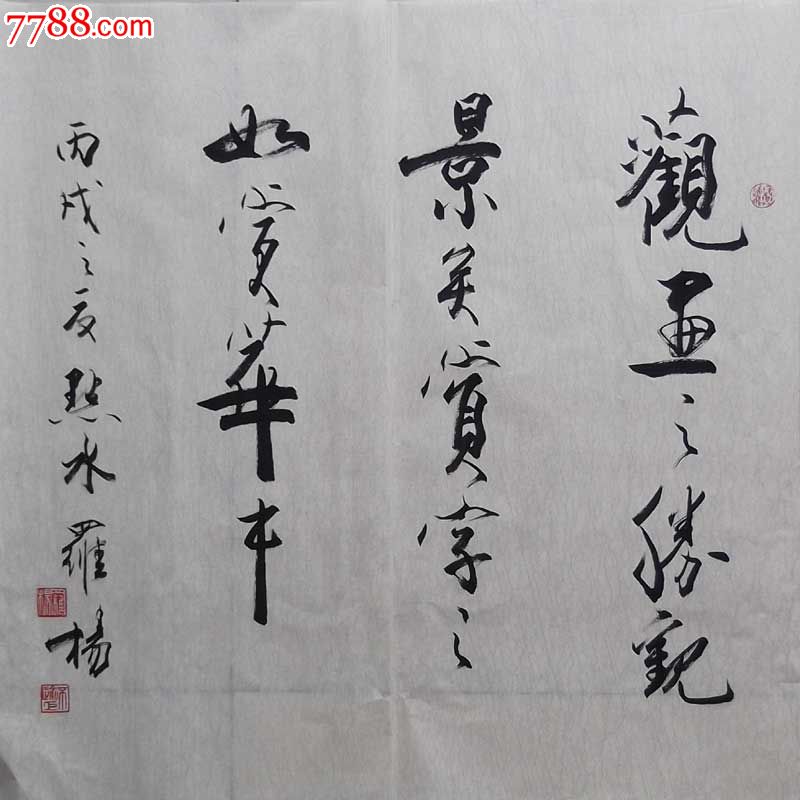 7788.com
觀画之勝觀
景美賞字之
如愛華
丙戌之夏點水羅楊